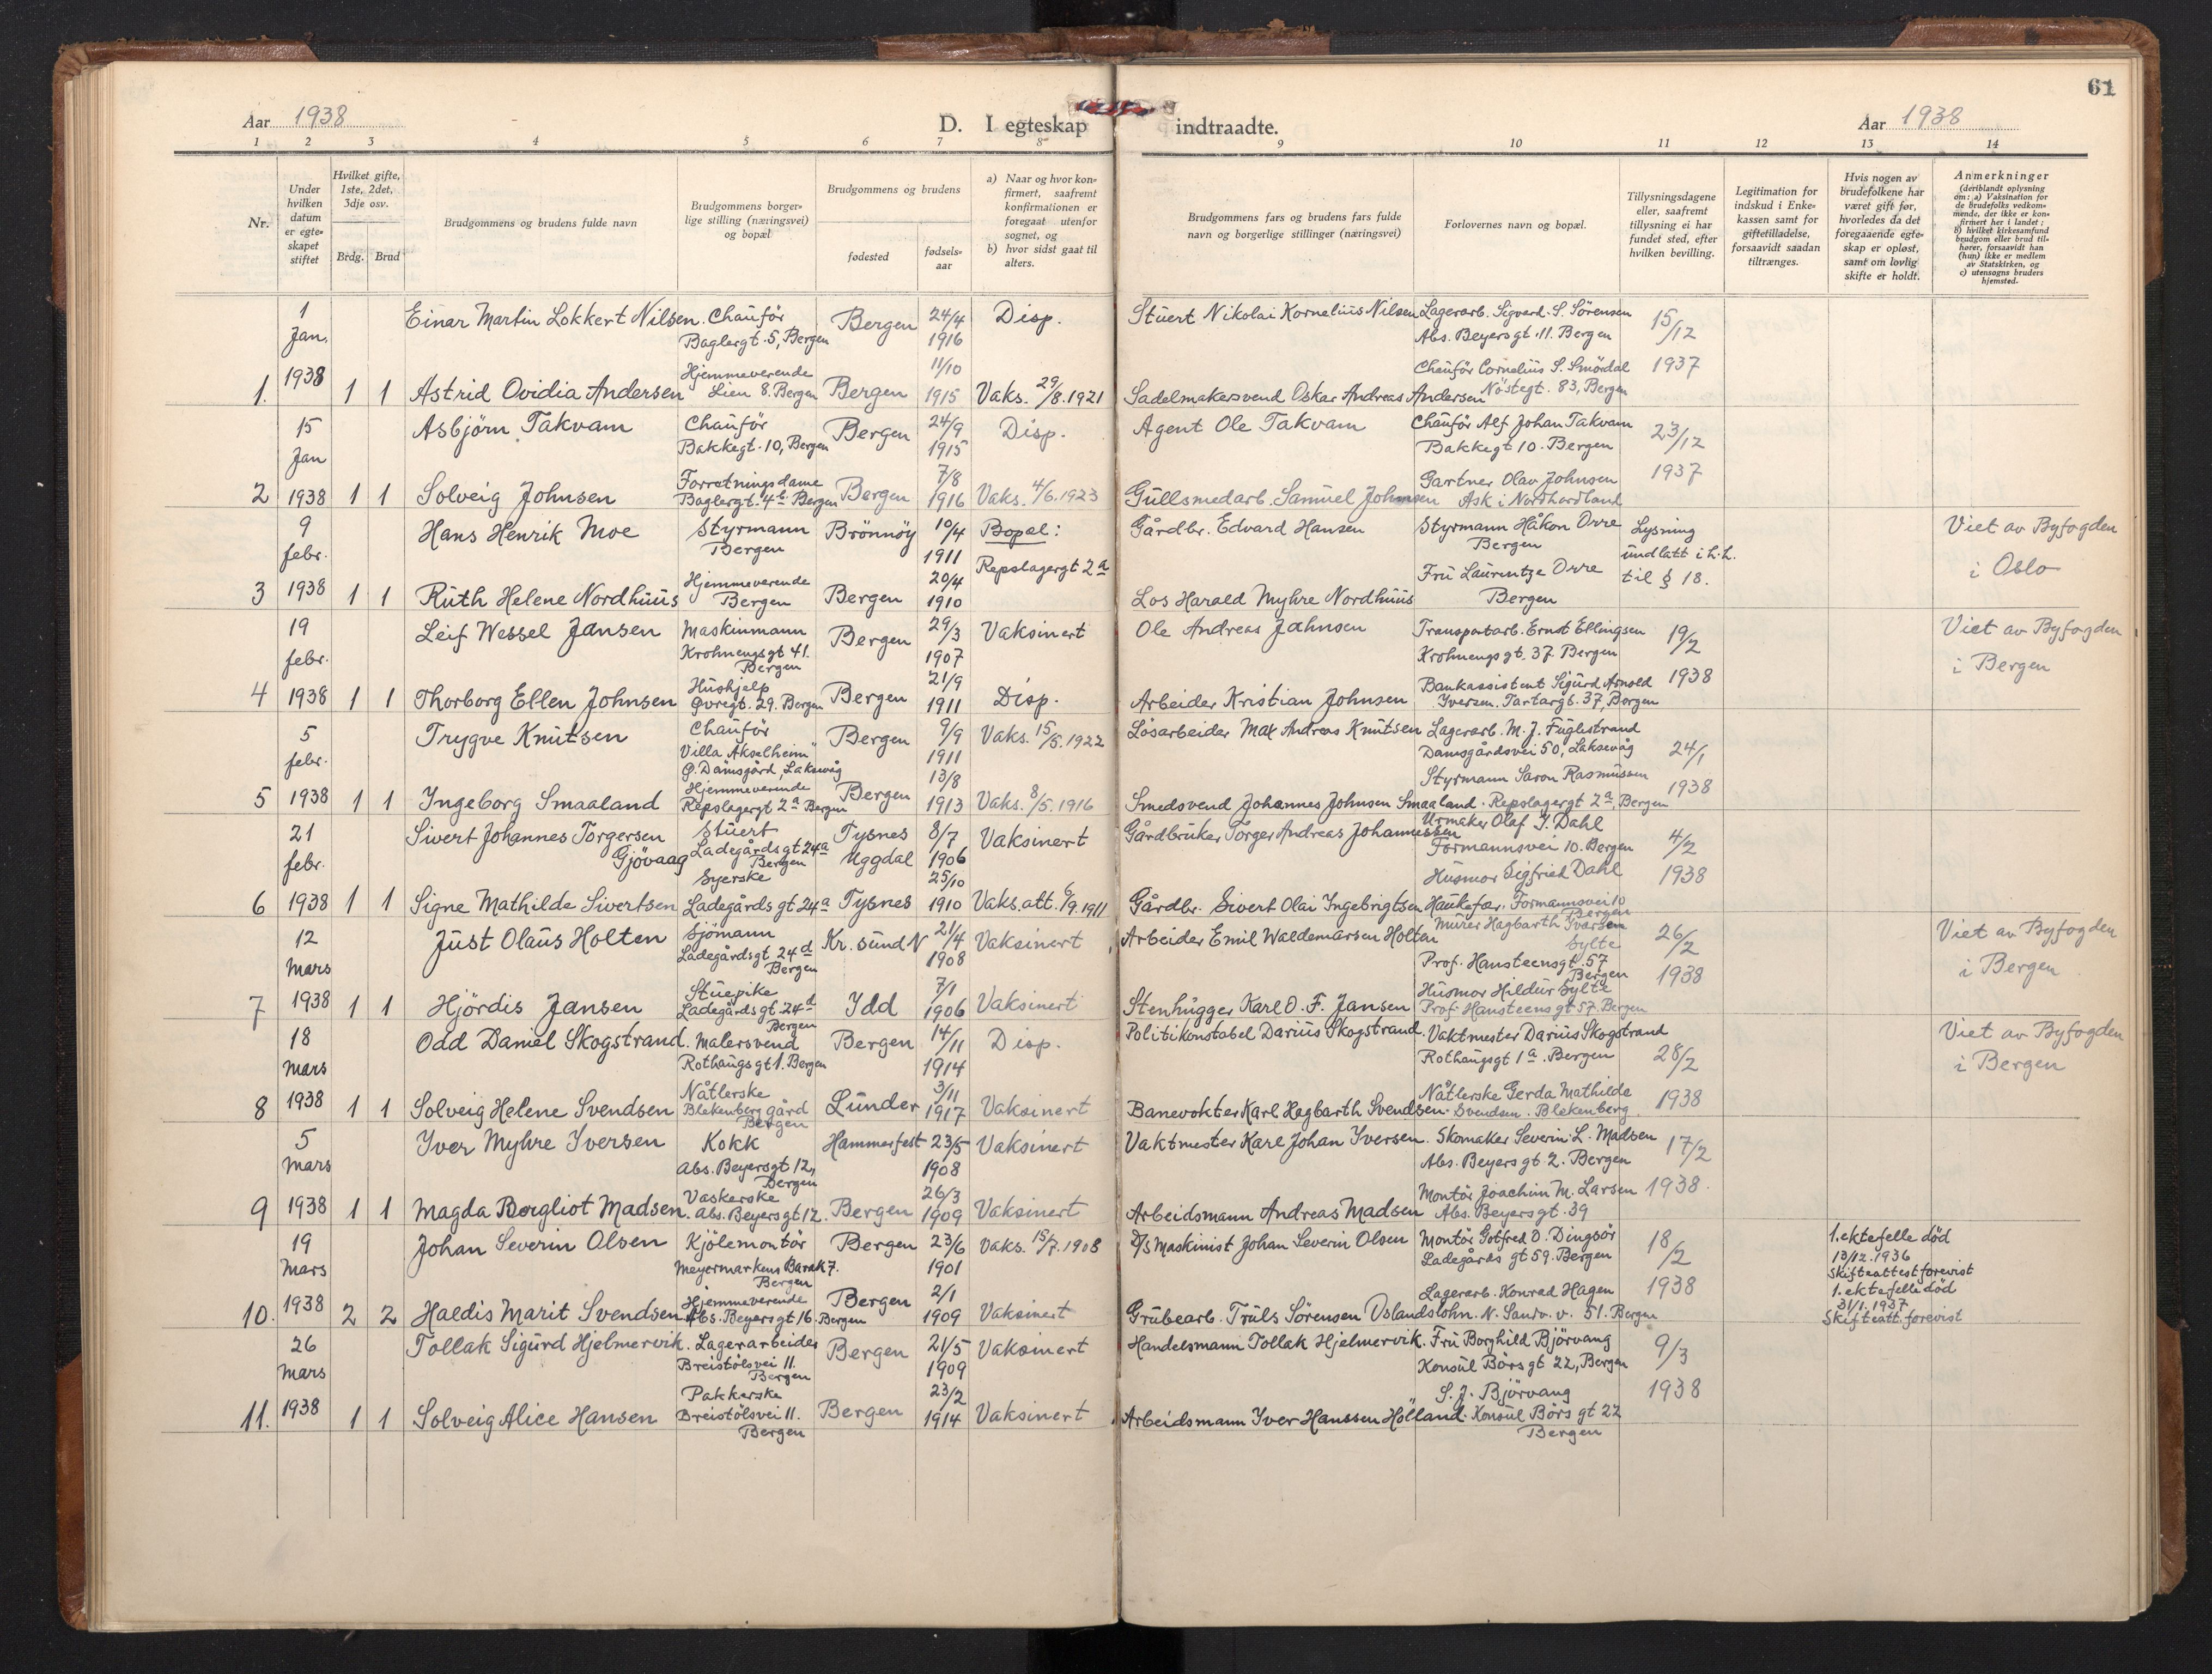 61
Aar 1938
D. I egteskap indtraadte.
Aar 1938
1 2 3 4 5 6 7 8 9 10 11 12 13 14
Nr.
Under hvilken datum er egteskapet stiftet
Hvilket gifte, 1ste, 2det, 3dje osv.
Brdg. Brud
Brudgommens og brudens fulde navn
Brudgommens borgerlige stilling (næringsvei) og bopæl
Brudgommens og brudens
fødested
fødselsaar
a) Naar og hvor konfirmert, saafremt konfirmationen er foregaat utenfor sognet, og
b) hvor sidst gaat til alters.
Brudgommens fars og brudens fars fulde navn og borgerlige stillinger (næringsvei)
Forlovernes navn og bopæl.
Tillysningsdagene eller, saafremt tillysning ei har fundet sted, efter hvilken bevilling.
Legitimation for indskud i Enkekassen samt for giftetilladelse, forsaavidt saadan tiltrænges.
Hvis nogen av brudefolkene har været gift før, hvorledes da det foregaaende egteskap er opløst, samt om lovlig skifte er holdt.
Anmerkninger
(deriblandt oplysning om: a) Vaksination for de brudefolks vedkommende, der ikke er konfirmert her i landet; b) hvilket kirkesamfund brudgom eller brud tilhører, forsaavidt han (hun) ikke er medlem av Statskirken, og c) utensogns bruders hjemsted.
1 Jan. 1938
Einar Martin Lokkert Nilsen. Chauför Baglergt. 5, Bergen Bergen 24/4 1916 Disp.
Stuert Nikolai Kornelius Nilsen Lagerarb. Sigverd. S. Sörensen Abs. Beyersgt. 11. Bergen 15/12 1937
1. 1 1 Astrid Ovidia Andersen Hjemmeverende Lien 8. Bergen Bergen 11/10 1915 Vaks. 29/8. 1921
Sadelmakersvend Oskar Andreas Andersen Chauför Cornelius S. Smördal Nöstegt. 83, Bergen
15 Jan 1938
Asbjörn Takvam Chauför Bakkegt. 10, Bergen Bergen 24/9 1915 Disp.
Agent Ole Takvam Chauför Alf Johan Takvam Bakkegt 10. Bergen 23/12 1937
2 1 1 Solveig Johnsen Forretningsdame Baglergt. 4 Bergen Bergen 7/8 1916 Vaks. 4/6. 1923
Gullsmedarb. Samuel Johnsen Gartner Olav Johnsen Ask i Nordhordland
9 febr. 1938
Hans Henrik Moe Styrmann Bergen Brönnöy 10/4 1911 Bopel: Repslagergt 2a
Gårdbr. Edvard Hansen Styrmann Håkon Orre Bergen Lysning undlatt i h.h. til § 18. Viet av Byfogden i Oslo
3 1 1 Ruth Helene Nordhuus Hjemmeverende Bergen Bergen 20/4 1910
Los Harald Myhre Nordhuus Fru Laurentze Orre Bergen
19 febr. 1938
Leif Wessel Jansen Maskinmann Krohnengsgt 41. Bergen Bergen 29/3 1907 Vaksinert
Ole Andreas Jahnsen Transportarb. Ernst Ellingsen Krohnengsgt. 37. Bergen 19/2 1938 Viet av Byfogden i Bergen
4 1 1 Thorborg Ellen Johnsen Hushjelp Øvregt. 29. Bergen Bergen 21/9 1911 Disp.
Arbeider Kristian Johnsen Bankassistent Sigurd Arnold Iversen. Tartargt. 37, Bergen
5 febr. 1938
Trygve Knutsen Chauför Villa "Akselheim" Ø. Damsgård, Laksevåg Bergen 9/9 1911 Vaks. 15/5. 1922
Lösarbeider Max Andreas Knutsen Lagerarb. M. J. Fuglestrand Damsgårdsvei 50, Laksevåg 24/1 1938
5 1 1 Ingeborg Smaaland Hjemmeverende Repslagergt 2a Bergen Bergen 13/8 1913 Vaks. 8/5. 1916
Smedsvend Johannes Johnsen Smaaland. Styrmann Saron Rasmussen Repslagergt 2a, Bergen
21 febr. 1938
Sivert Johannes Torgersen Gjövaag Stuert Ladegårdsgt 24a Bergen Tysnes Uggdal 8/7 1906 Vaksinert
Gårdbruker Torger Andreas Johannessen Urmaker Olaf J. Dahl Formannsvei 10. Bergen 4/2 1938
6 1 1 Signe Mathilde Sivertsen Syerske Ladegårdsgt 24a Tysnes 25/10 1910 Vaks. att. 6/9. 1911
Gårdbr. Sivert Olai Ingebrigtsen Haukefær. Husmor Sigfried Dahl Formannsvei 10 Bergen
12 Mars 1938
Just Olaus Holten Sjömann Ladegårdsgt 24d Bergen Kr. sund N 21/4 1908 Vaksinert
Arbeider Emil Waldemarsen Holten Murer Hagbarth Ivarsen Sylte Prof. Hansteensgt. 57 Bergen 26/2 1938 Viet av Byfogden i Bergen
7 1 1 Hjördis Jansen Stuepike Ladegårdsgt 24d Bergen Idd 7/1 1906 Vaksinert
Stenhugger Karl O. F. Jansen Husmor Hildur Sylte Prof. Hansteensgt 57. Bergen
18 Mars 1938
Odd Daniel Skogstrand. Malersvend Rothaugsgt 1. Bergen Bergen 14/11 1914 Disp.
Politikonstabel Darius Skogstrand. Vaktmester Darius Skogstrand Rothaugsgt 1a. Bergen 28/2 1938 Viet av Byfogden i Bergen
8 1 1 Solveig Helene Svendsen Nåtlerske Blekenberg gård Bergen Lunder 3/11 1917 Vaksinert
Banevokter Karl Hagbarth Svendsen. Nåtlerske Gerda Mathilde Svendsen. Blekenberg.
5 Mars 1938
Iver Myhre Iversen Kokk Abs. Beyersgt 12, Bergen Hammerfest 23/5 1908 Vaksinert
Vaktmester Karl Johan Iversen. Skomaker Severin L. Madsen Abs. Beyersgt. 2. Bergen 17/2 1938.
9 1 1 Magda Borgliot Madsen. Vaskerske Abs. Beyersgt 12. Bergen 26/3 1909 Vaksinert
Arbeidsmann Andreas Madsen Montör Joachim M. Larsen Abs. Beyersgt. 39
19 Mars 1938
Johan Severin Olsen Kjölemontör Meyermarkens Barak 7. Bergen Bergen 23/6 1901 Vaks. 15/7. 1908
D/S Maskinist Johan Severin Olsen Montör Gotfred O. Dingsör Ladegårdsgt 59. Bergen 18/2 1938 1. ektefelle död 13/12. 1936 Skifteattest forevist
10. 2 2 Haldis Marit Svendsen Hjemmeverende Abs. Beyersgt 16. Bergen Bergen 2/1 1909 Vaksinert
Grubearb. Truls Sörensen Oslandslohn. Lagerarb. Konrad Hagen N. Sandv. v. 51. Bergen 1. ektefelle död 31/1. 1937 Skifteatt. forevist
26 Mars 1938
Tollak Sigurd Hjelmervik. Lagerarbeider Breistölsvei 11. Bergen Bergen 21/5 1909 Vaksinert
Handelsmann Tollak Hjelmervik. Fru Borghild Björvang Konsul Börs gt 22, Bergen 9/3 1938
11. 1 1 Solveig Alice Hansen Pakkerske Breistölsvei 11. Bergen Bergen 23/2 1914 Vaksinert
Arbeidsmann Iver Hanssen Hölland. S. J. Björvang Konsul Börs gt 22 Bergen